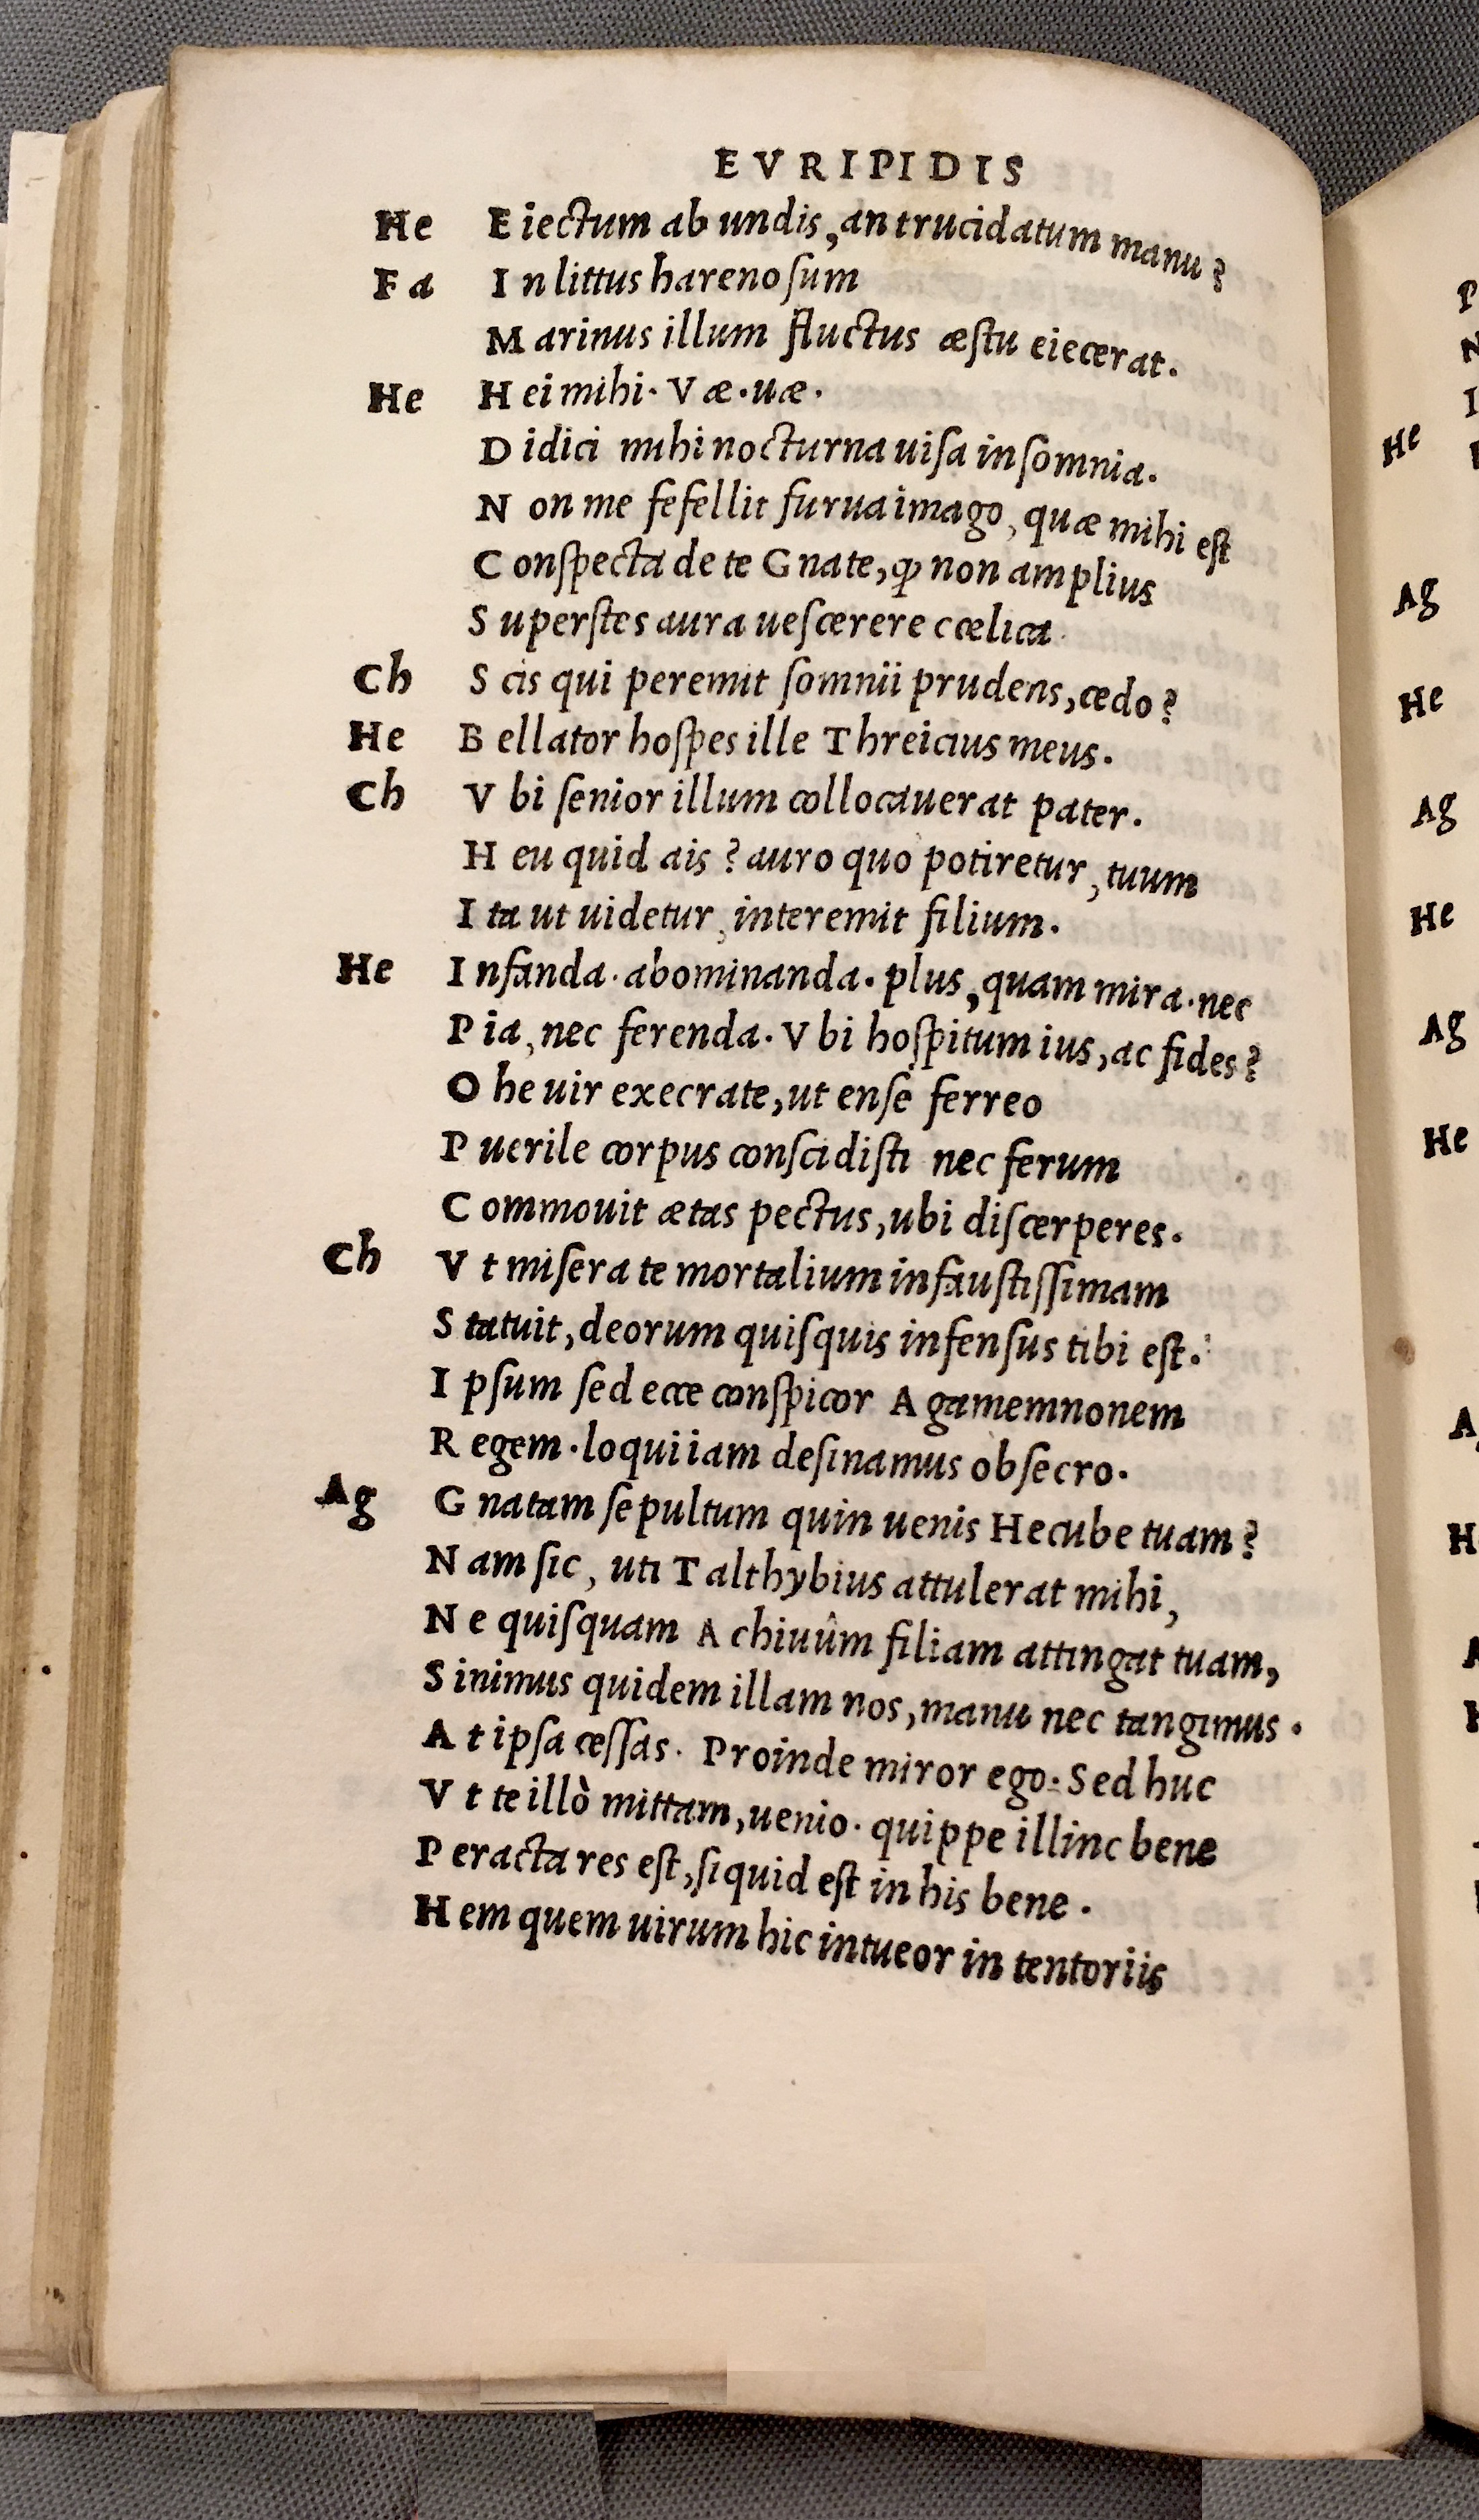 EVRIPIDIS
He Eiectum ab undis, an trucidatum manu?
Fa In littus harenosum
Marinus illum fluctus æstu eiecerat.
He Hei mihi. Væ. uæ.
Didici mihi nocturna uisa insomnia.
Non me fefellit furua imago, quæ mihi est
Conspecta de te Gnate, ꝙ non amplius
Superstes aura uescerere cœlica.
Ch Scis qui peremit somnii prudens, cedo?
He Bellator hospes ille Threicius meus.
Ch Vbi senior illum collocauerat pater.
Heu quid ais? auro quo potiretur, tuum
Ita ut uidetur, interemit filium.
He Infanda. abominanda. plus, quam mira. nec
Pia, nec ferenda. Vbi hospitum ius, ac fides?
Ohe uir execrate, ut ense ferreo
Puerile corpus conscidisti nec ferum
Commouit ætas pectus, ubi discerperes.
Ch Vt misera te mortalium infaustissimam
Statuit, deorum quisquis infensus tibi est.
Ipsum sed ecce conspicor Agamemnonem
Regem. loqui iam desinamus obsecro.
Ag Gnatam sepultum quin uenis Hecube tuam?
Nam sic, uti Talthybius attulerat mihi,
Ne quisquam Achiuûm filiam attingat tuam,
Sinimus quidem illam nos, manu nec tangimus.
At ipsa cessas. Proinde miror ego: Sed huc
Vt te illò mittam, uenio. quippe illinc bene
Peracta res est, si quid est in his bene.
Hem quem uirum hic intueor in tentoriis
He
Ag
He
Ag
He
Ag
He